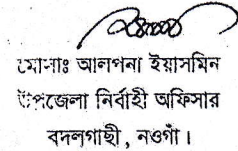 মোসাঃ আলপনা ইয়াসমিন
উপজেলা নির্বাহী অফিসার
বদলগাছী, নওগাঁ।